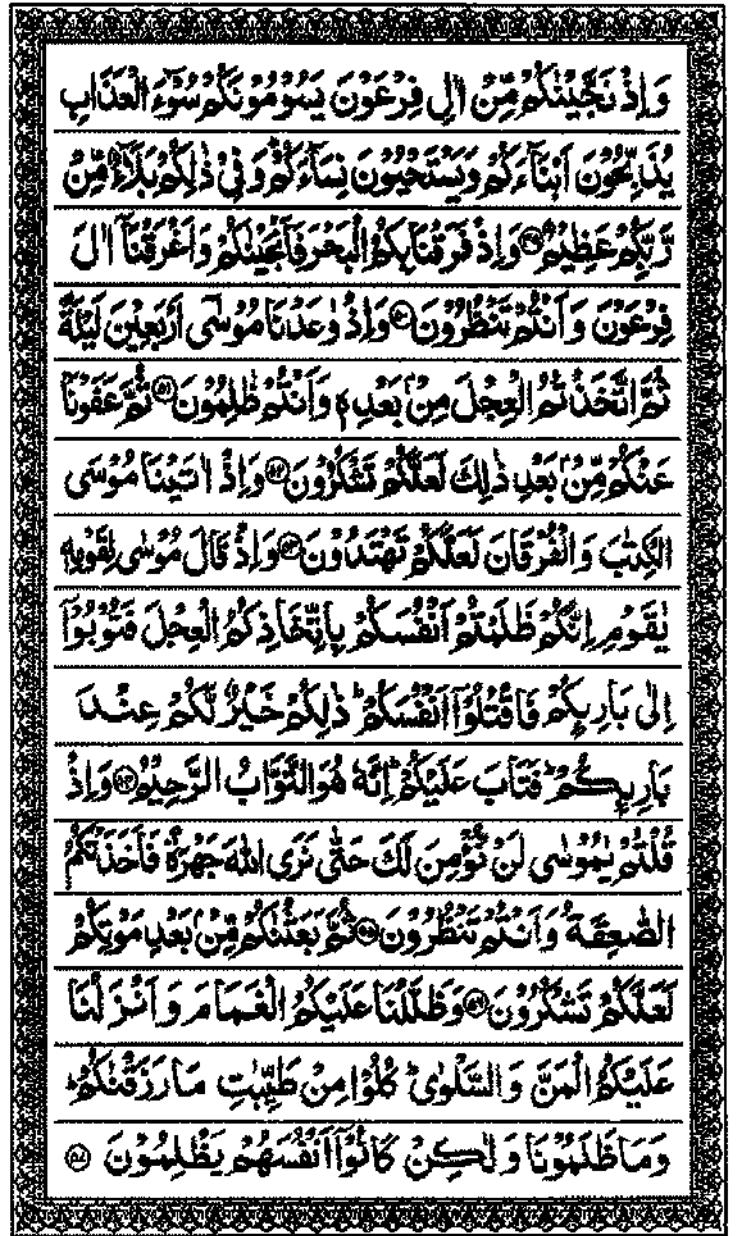 وَاِذْ نَجَّيْنٰكُمْ مِّنْ اٰلِ فِرْعَوْنَ يَسُوْمُوْنَكُمْ سُوْٓءَ الْعَذَابِ
يُذَبِّحُوْنَ اَبْنَآءَكُمْ وَيَسْتَحْيُوْنَ نِسَآءَكُمْ ؕ وَفِيْ ذٰلِكُمْ بَلَآءٌ مِّنْ
رَّبِّكُمْ عَظِيْمٌ ﴿۴۹﴾ وَاِذْ فَرَقْنَا بِكُمُ الْبَحْرَ فَاَنْجَيْنٰكُمْ وَاَغْرَقْنَآ اٰلَ
فِرْعَوْنَ وَاَنْتُمْ تَنْظُرُوْنَ ﴿۵۰﴾ وَاِذْ وٰعَدْنَا مُوْسٰٓى اَرْبَعِيْنَ لَيْلَةً
ثُمَّ اتَّخَذْتُمُ الْعِجْلَ مِنْۢ بَعْدِهٖ وَاَنْتُمْ ظٰلِمُوْنَ ﴿۵۱﴾ ثُمَّ عَفَوْنَا
عَنْكُمْ مِّنْۢ بَعْدِ ذٰلِكَ لَعَلَّكُمْ تَشْكُرُوْنَ ﴿۵۲﴾ وَاِذْ اٰتَيْنَا مُوْسَى
الْكِتٰبَ وَالْفُرْقَانَ لَعَلَّكُمْ تَهْتَدُوْنَ ﴿۵۳﴾ وَاِذْ قَالَ مُوْسٰى لِقَوْمِهٖ
يٰقَوْمِ اِنَّكُمْ ظَلَمْتُمْ اَنْفُسَكُمْ بِاتِّخَاذِكُمُ الْعِجْلَ فَتُوْبُوْٓا
اِلٰى بَارِىِٕكُمْ فَاقْتُلُوْٓا اَنْفُسَكُمْ ؕ ذٰلِكُمْ خَيْرٌ لَّكُمْ عِنْدَ
بَارِىِٕكُمْ ؕ فَتَابَ عَلَيْكُمْ ؕ اِنَّهٗ هُوَ التَّوَّابُ الرَّحِيْمُ ﴿۵۴﴾ وَاِذْ
قُلْتُمْ يٰمُوْسٰى لَنْ نُّؤْمِنَ لَكَ حَتّٰى نَرَى اللّٰهَ جَهْرَةً فَاَخَذَتْكُمُ
الصّٰعِقَةُ وَاَنْتُمْ تَنْظُرُوْنَ ﴿۵۵﴾ ثُمَّ بَعَثْنٰكُمْ مِّنْۢ بَعْدِ مَوْتِكُمْ
لَعَلَّكُمْ تَشْكُرُوْنَ ﴿۵۶﴾ وَظَلَّلْنَا عَلَيْكُمُ الْغَمَامَ وَاَنْزَلْنَا
عَلَيْكُمُ الْمَنَّ وَالسَّلْوٰى ؕ كُلُوْا مِنْ طَيِّبٰتِ مَا رَزَقْنٰكُمْ ؕ
وَمَا ظَلَمُوْنَا وَلٰكِنْ كَانُوْٓا اَنْفُسَهُمْ يَظْلِمُوْنَ ﴿۵۷﴾